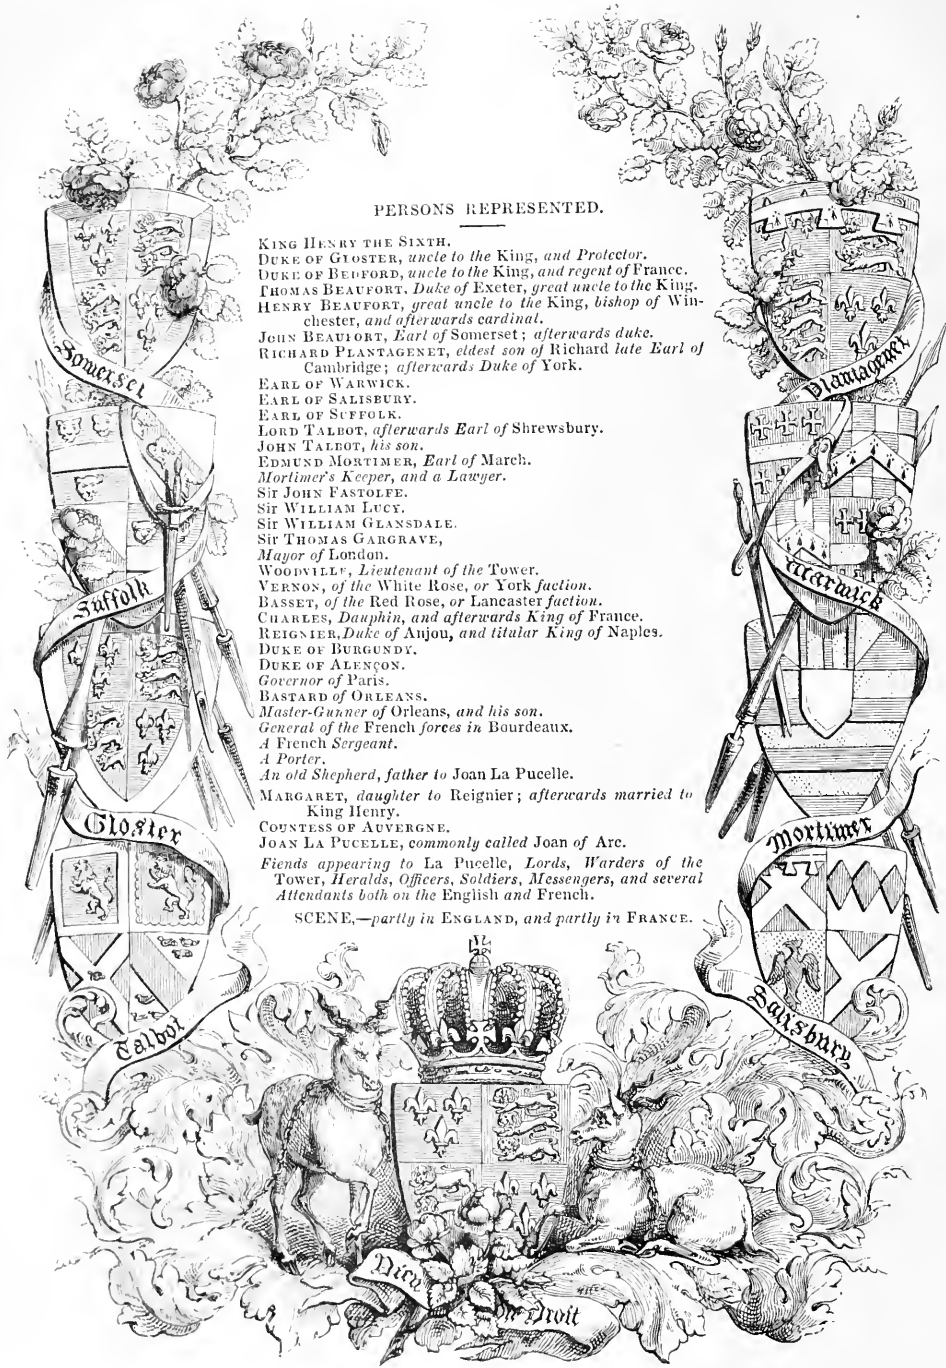 PERSONS REPRESENTED.
KING HENRY THE SIXTH.
DUKE OF GLOSTER, uncle to the King, and Protector.
DUKE OF BEDFORD, uncle to the King, and regent of France.
THOMAS BEAUFORT, Duke of Exeter, great uncle to the King.
HENRY BEAUFORT, great uncle to the King, bishop of Win-
chester, and afterwards cardinal.
JOHN BEAUFORT, Earl of Somerset; afterwards duke.
RICHARD PLANTAGENET, eldest son of Richard late Earl of
Cambridge; afterwards Duke of York.
EARL OF WARWICK.
EARL OF SALISBURY.
EARL OF SUFFOLK.
LORD TALBOT, afterwards Earl of Shrewsbury.
JOHN TALBOT, his son.
EDMUND MORTIMER, Earl of March.
Mortimer's Keeper, and a Lawyer.
Sir JOHN FASTOLFE.
Sir WILLIAM LUCY.
Sir WILLIAM GLANSDALE.
Sir THOMAS GARGRAVE,
Mayor of London.
WOODVILLE, Lieutenant of the Tower.
VERNON, of the White Rose, or York faction.
BASSET, of the Red Rose, or Lancaster faction.
CHARLES, Dauphin, and afterwards King of France.
REIGNIER, Duke of Anjou, and titular King of Naples.
DUKE OF BURGUNDY.
DUKE OF ALENÇON.
Governor of Paris.
BASTARD of ORLEANS.
Master-Gunner of Orleans, and his son.
General of the French forces in Bourdeaux.
A French Sergeant.
A Porter.
An old Shepherd, father to Joan La Pucelle.
MARGARET, daughter to Reignier; afterwards married to
King Henry.
COUNTESS OF AUVERGNE.
JOAN LA PUCELLE, commonly called Joan of Arc.
Fiends appearing to La Pucelle, Lords, Warders of the
Tower, Heralds, Officers, Soldiers, Messengers, and several
Attendants both on the English and French.
SCENE,—partly in ENGLAND, and partly in FRANCE.
Somerset
Suffolk
Gloster
Talbot
Plantagenet
Warwick
Mortimer
Salisbury
Dieu
Droit